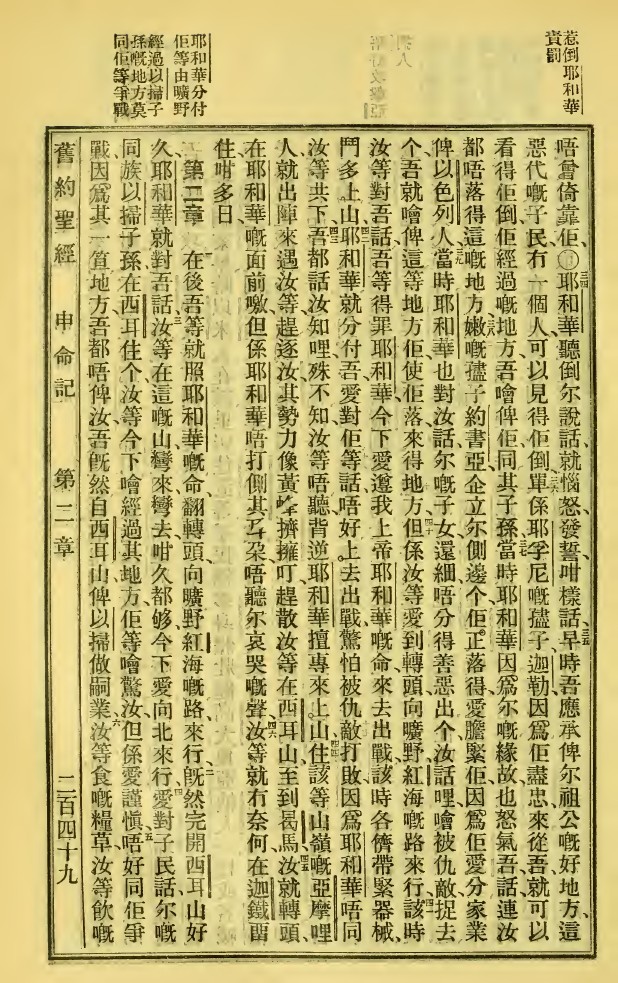 惹倒耶和華
責罰
唔曾倚靠佢、〇三四耶和華聽倒尔說話就惱怒發誓咁樣話、三五早時吾應承俾尔祖公嘅好地方、這
惡代嘅子民有一個人可以見得佢倒、三六單係耶孚尼嘅孻子迦勒因爲佢盡忠來從吾就可以
看得佢倒、佢經過嘅地方吾噲俾佢同其子孫、三七當時耶和華因爲尔嘅緣故也怒氣吾話、連汝
都唔落得這嘅地方、三八嫩嘅孻子約書亞企立尔側邊个佢正落得、愛膽緊佢因爲佢愛分家業
俾以色列人、三九當時耶和華也對汝話、尔嘅子女還細唔分得善惡出个汝話哩噲被仇敵捉去
个吾就噲俾這等地方佢、使佢落來得地方、四十但係汝等愛到轉頭向曠野紅海嘅路來行、四一該時
汝等對吾話、吾等得罪耶和華今下愛遵我上帝耶和華嘅命來去出戰、該時各儕帶緊器械、
鬥多上山、四二耶和華就分付吾、愛對佢等話唔好上去出戰、驚怕被仇敵打敗、因爲耶和華唔同
汝等共下、四三吾都話汝知哩、殊不知汝等唔聽背逆耶和華擅專來上山、四四住該等山嶺嘅亞摩哩
人就出陣來遇汝等、趕逐汝其勢力像黃蜂擠擁叮趕散汝等在西耳山至到曷馬、四五汝就轉頭、
在耶和華嘅面前噭、但係耶和華唔打側其耳朶、唔聽尔哀哭嘅聲、四六汝等就冇奈何在迦鐵畱
住咁多日、
耶和華分付
佢等由曠野
經過以掃子
孫嘅地方莫
同佢等爭戰
第二章　在後吾等就照耶和華嘅命、翻轉頭向曠野紅海嘅路來行、二旣然完開西耳山好
久、耶和華就對吾話、三汝等在這嘅山彎來彎去咁久都够、今下愛向北來行、四愛對子民話尔嘅
同族以掃子孫在西耳住个汝等今下噲經過其地方、佢等噲驚汝、但係愛謹愼、五唔好同佢爭
戰、因爲其一笪地方吾都唔俾汝、吾旣然自西耳山俾以掃做嗣業、六汝等食嘅糧草、汝等飲嘅
舊約聖經　申命記　第二章　二百四十九